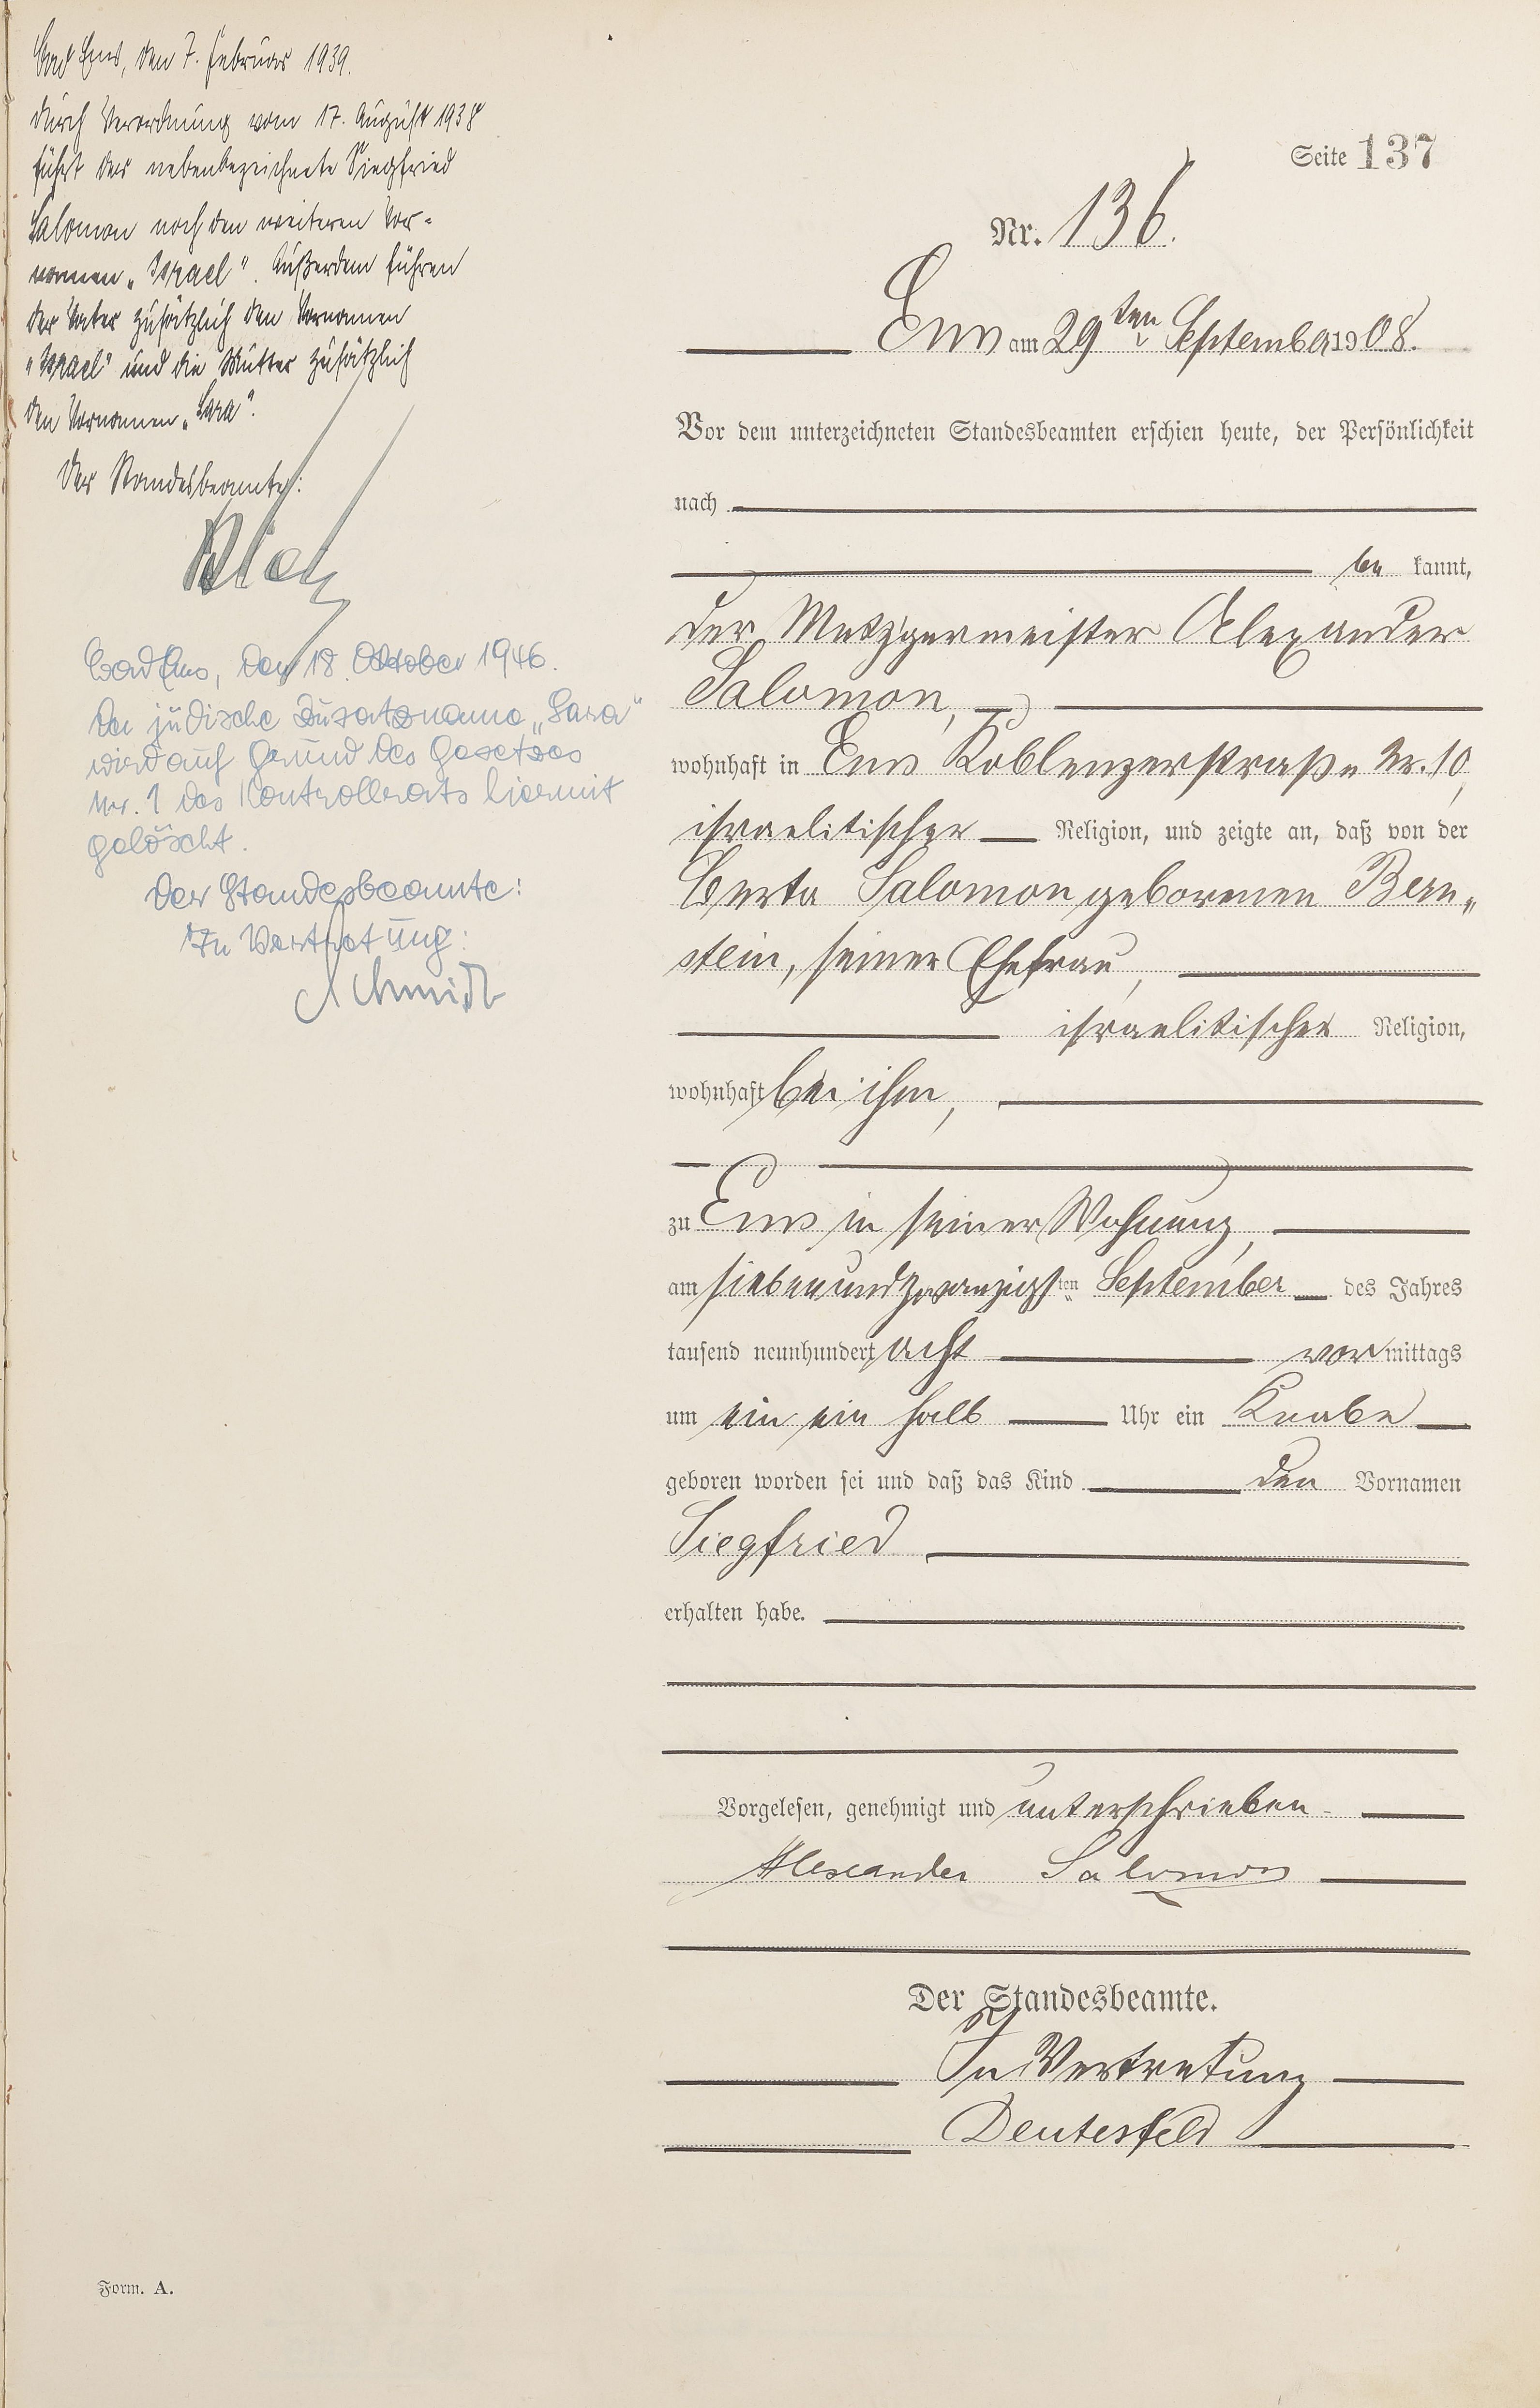 Bad Ems, den 7. Februar 1939.
Durch Verordnung vom 17. August 1938
führt der nebenbezeichnete Siegfried
Salomon noch den weiteren Vor-
namen „Israel". Außerdem führen
der Vater zusätzlich den Vornamen
„Israel" und die Mutter zusätzlich
den Vornamen „Sara".
Der Standesbeamte:
Bad Ems, den 18. Oktober 1946.
Der jüdische Zusatzname „Sara"
wird auf Grund des Gesetzes
Nr. 1 des Kontrollrats hiermit
gelöscht.
Der Standesbeamte:
In Vertretung:
Schmidt
Seite 137
Nr. 136.
Ems am 29ten September 1908.
Vor dem unterzeichneten Standesbeamten erschien heute, der Persönlichkeit
nach
be kannt,
der Metzgermeister Alexander
Salomon,
wohnhaft in Ems Koblenzerstraße Nr. 10,
israelitischer Religion, und zeigte an, daß von der
Berta Salomon geborenen Bern„
stein, seiner Ehefrau,
israelitischer Religion,
wohnhaft bei ihm,
zu Ems in seiner Wohnung,
am siebenundzwanzigsten September des Jahres
tausend neunhundert acht vormittags
um ein ein halb Uhr ein Knabe
geboren worden sei und daß das Kind den Vornamen
Siegfried
erhalten habe.
Vorgelesen, genehmigt und unterschrieben
Alexander Salomon
Der Standesbeamte.
In Vertretung
Deutesfeld
Form. A.